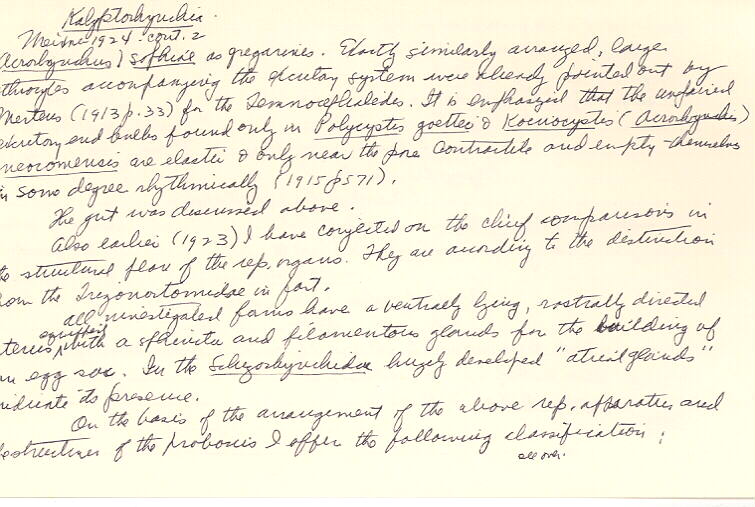 Kalyptorhynchia.
Meixner 1924 cont. 2
Acrorhynchus) sophiae as gregarines. Exactly similarly arranged, large
throcytes accompanying the excretory system were already pointed out by
Merton (1913 p.33) for the Temnocephalides. It is emphasized that the unpaired
excretory end bulbs found only in Polycystis goettei & (Acrorhynchus)
neocomensis are elastic & only near the pore contractile and empty themselves
in some degree rhythmically (1915 p571).
The gut was discussed above.
Also earlier (1923) I have on the chief comparisons in
the structural plan of the rep. organs. They are according to the distinction
from the Trigonostomidae in part.
All investigated forms have a ventrally lying, rostrally directed
uterus equipped with a sphincter and filamentous glands for the building of
an egg sac. In the Schizorhynchidae hugely developed "atrial glands"
indicate its presence.
On the basis of the arrangement of the above rep. apparatus and
of the proboscis I offer the following classification:
see over.